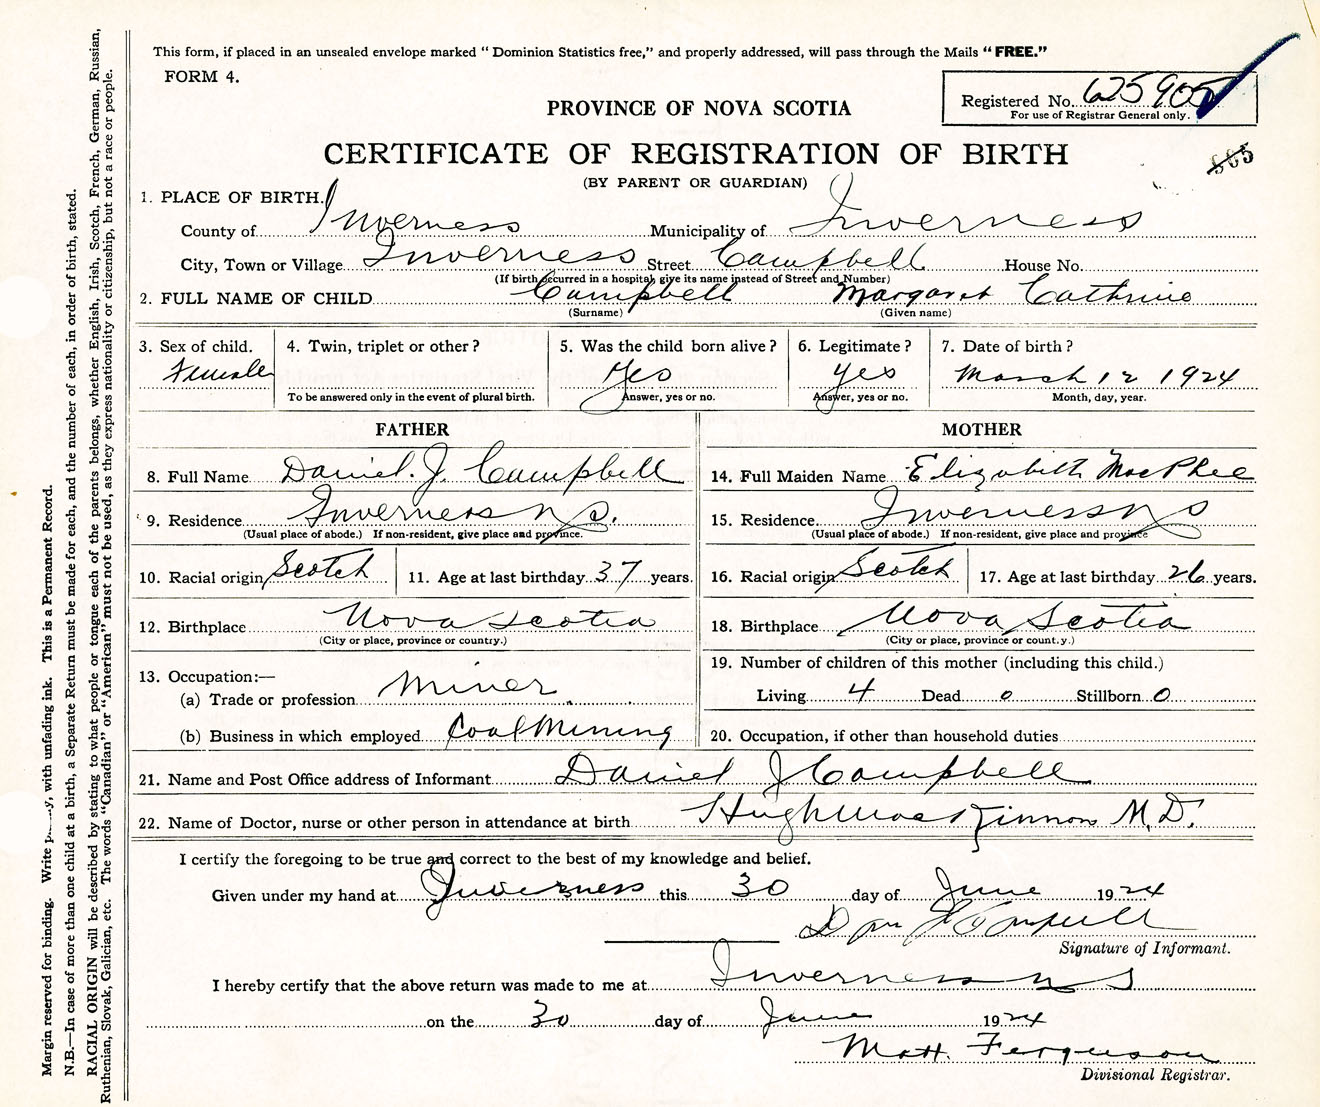 This form, if placed in an unsealed envelope marked "Dominion Statistics free," and properly addressed, will pass through the Mails "FREE."
FORM 4.
Registered No. 625905
For use of Registrar General only.
PROVINCE OF NOVA SCOTIA
CERTIFICATE OF REGISTRATION OF BIRTH
(BY PARENT OR GUARDIAN)
1. PLACE OF BIRTH.
County of Inverness Municipality of Inverness
City, Town or Village Inverness Street Campbell House No.
(If birth occurred in a hospital, give its name instead of Street and Number)
2. FULL NAME OF CHILD Campbell Margaret Cathrine
(Surname) (Given name)
3. Sex of child. 4. Twin, triplet or other? 5. Was the child born alive? 6. Legitimate? 7. Date of birth?
Female Yes yes March 12 1924
To be answered only in the event of plural birth. Answer, yes or no. Answer, yes or no. Month, day, year.
FATHER
8. Full Name Daniel. J. Campbell
9. Residence Inverness N S.
(Usual place of abode.) If non-resident, give place and province.
10. Racial origin Scotch 11. Age at last birthday 37 years.
12. Birthplace Nova Scotia
(City or place, province or country.)
13. Occupation:—
(a) Trade or profession Miner
(b) Business in which employed Coal Mining
MOTHER
14. Full Maiden Name Elizabeth MacPhee
15. Residence Inverness N S
(Usual place of abode.) If non-resident, give place and province
16. Racial origin Scotch 17. Age at last birthday 26 years.
18. Birthplace Nova Scotia
(City or place, province or country.)
19. Number of children of this mother (including this child.)
Living 4 Dead 0 Stillborn 0
20. Occupation, if other than household duties
21. Name and Post Office address of Informant Daniel J Campbell
22. Name of Doctor, nurse or other person in attendance at birth Hugh MacKinnon M.D.
I certify the foregoing to be true and correct to the best of my knowledge and belief.
Given under my hand at Inverness this 30 day of June 1924
Dan J Campbell
Signature of Informant.
I hereby certify that the above return was made to me at Inverness N S
on the 30 day of June 1924
Matt. Ferguson
Divisional Registrar.
Margin reserved for binding. Write with unfading ink. This is a Permanent Record.
N.B.—In case of more than one child at a birth, a Separate Return must be made for each, and the number of each, in order of birth, stated.
RACIAL ORIGIN will be described by stating to what people or tongue each of the parents belongs, whether English, Irish, Scotch, French, German, Russian,
Ruthenian, Slovak, Galician, etc. The words "Canadian" or "American" must not be used, as they express nationality or citizenship, but not a race or people.